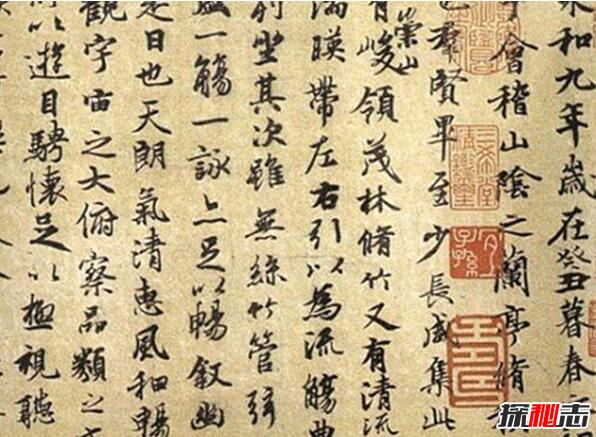 永和九年歲在癸丑暮春之初
會稽山陰之蘭亭脩禊
也羣賢畢至少長咸集此
有崇山峻領茂林脩竹又有清流
湍暎帶左右引以為流觴曲
列坐其次雖無絲竹管弦
盛一觴一詠亦足以暢叙幽
是日也天朗氣清惠風和暢
觀宇宙之大俯察品類之
所以遊目騁懷足以極視聽
探秘志